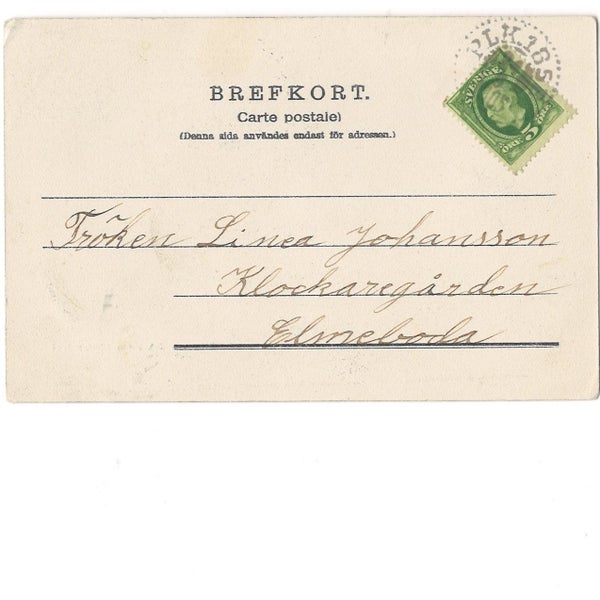 PLK. 185
SVERIGE
5
ÖRE ÖRE
BREFKORT.
Carte postale)
(Denna sida användes endast för adressen.)
Fröken Linea Johansson
Klockaregården
Elmeboda